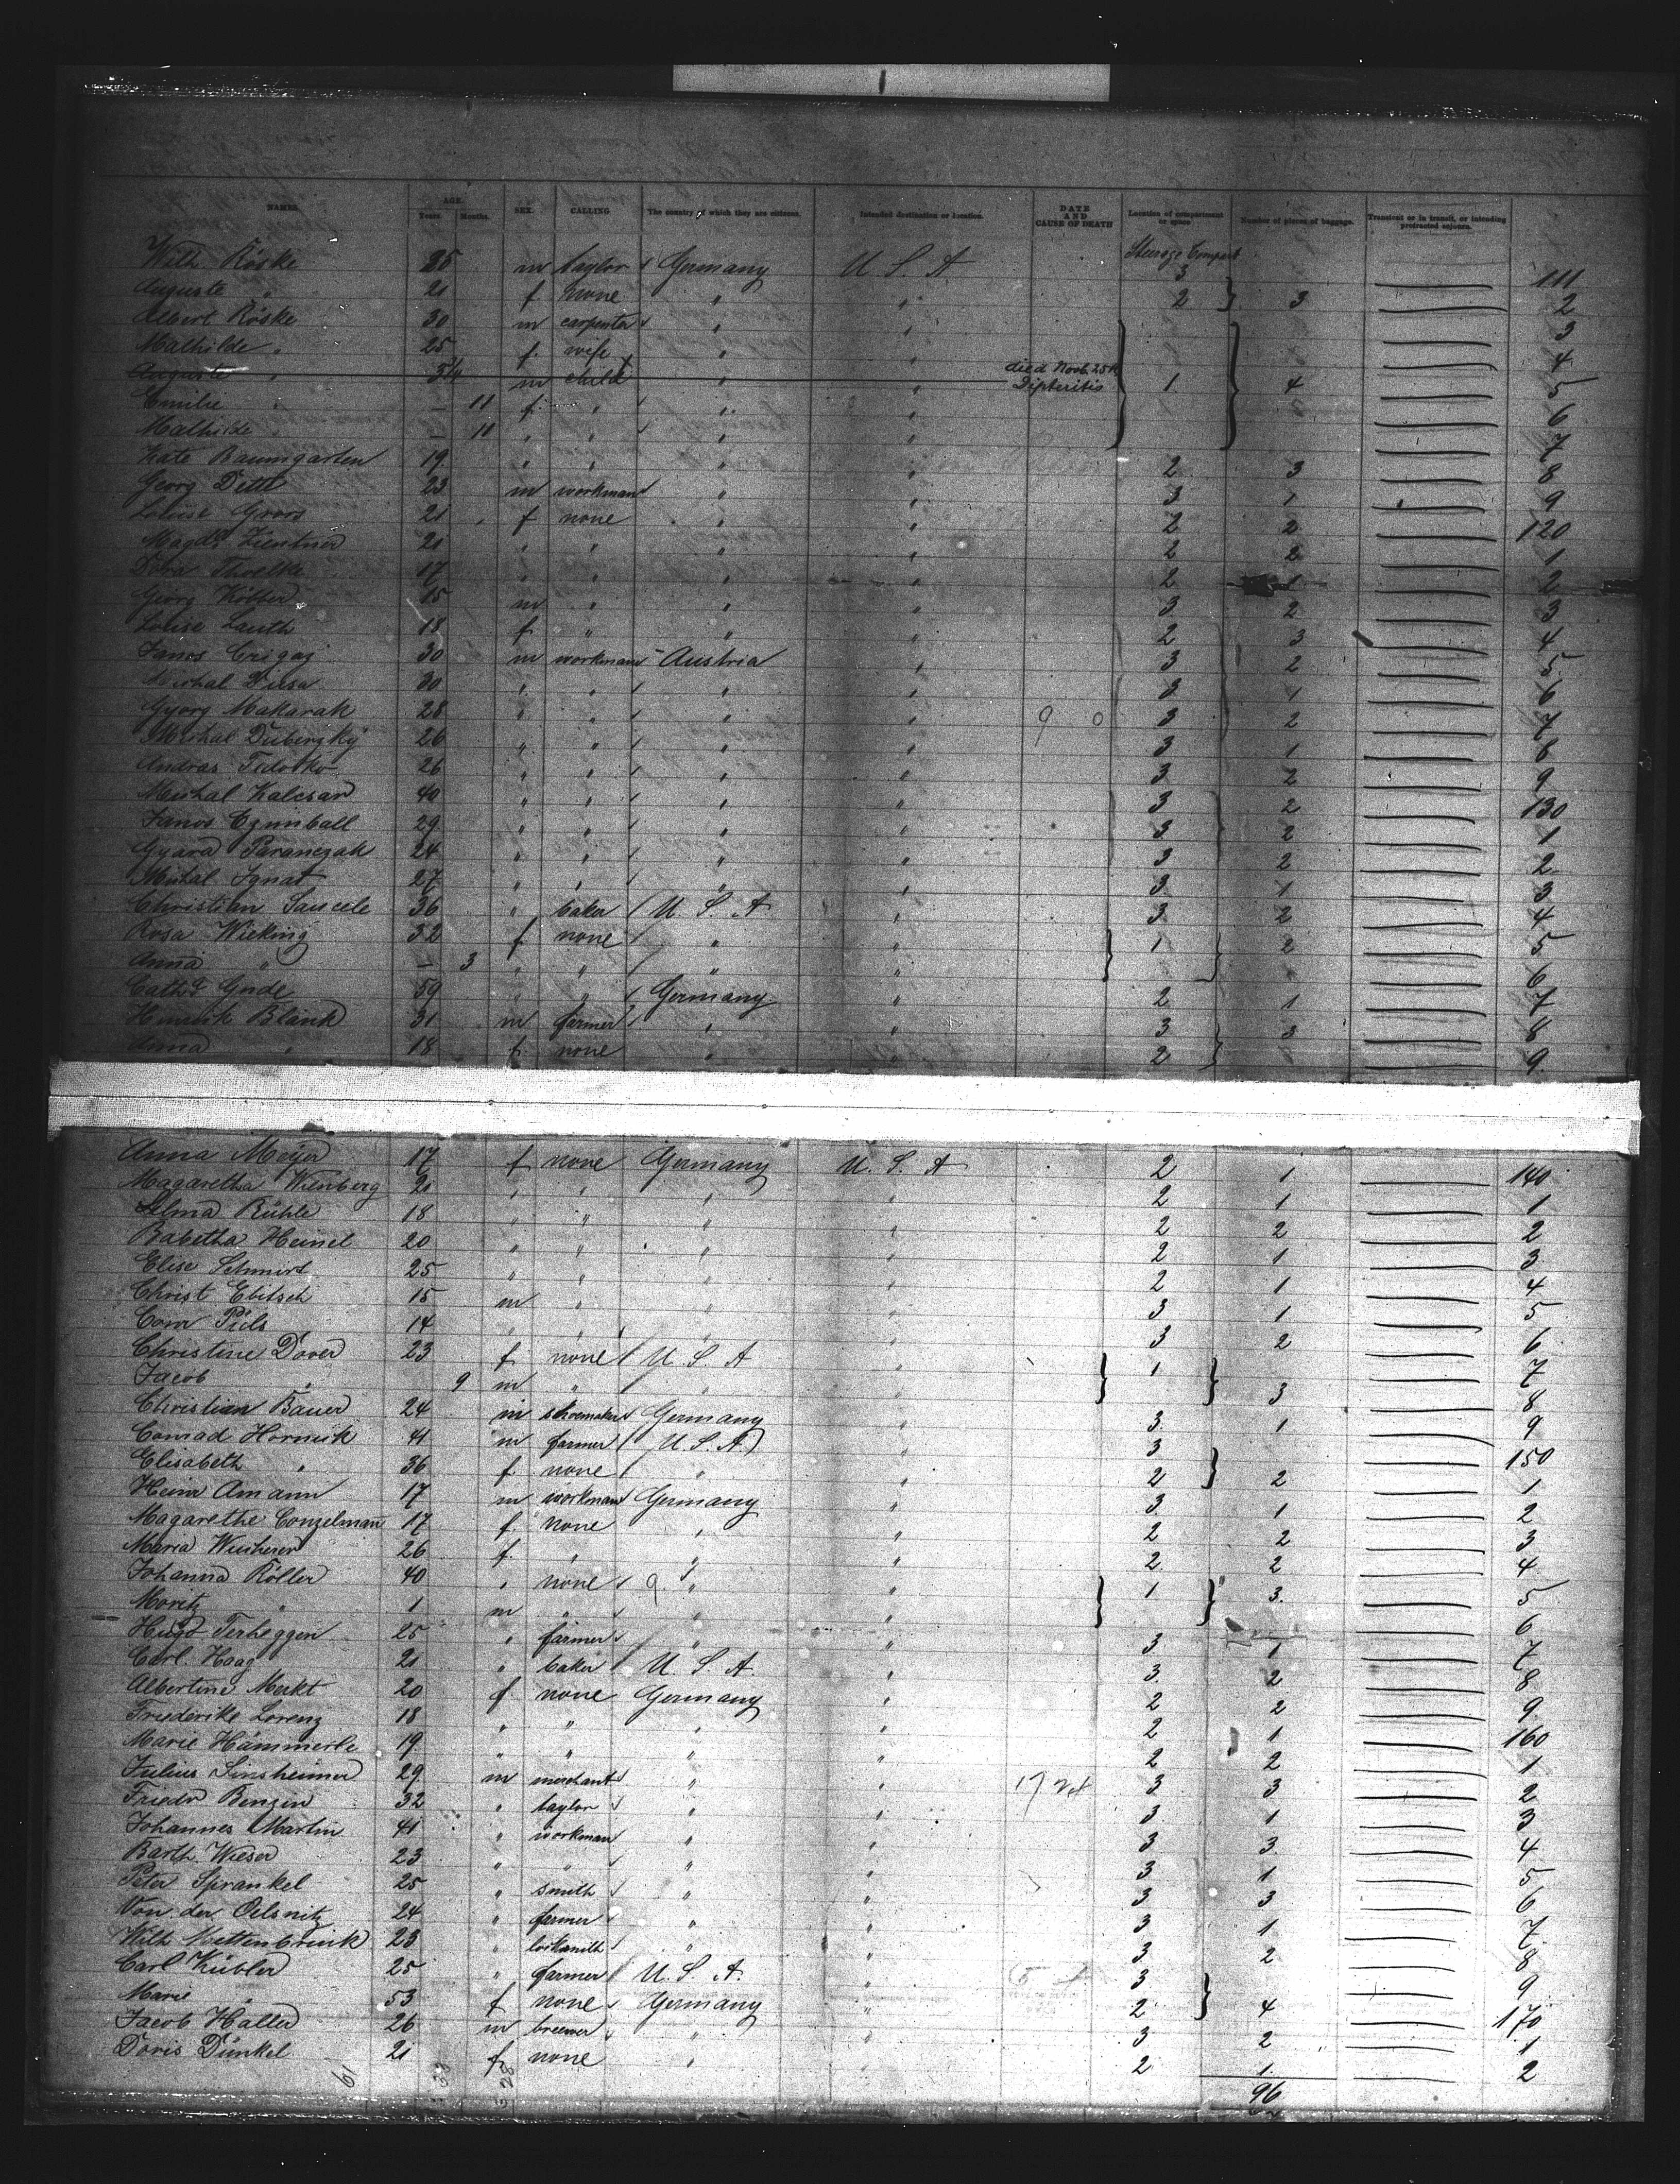 NAMES. AGE. Years. Months. SEX. CALLING The country of which they are citizens. Intended destination or location. DATE AND CAUSE OF DEATH Location of compartment or space Number of pieces of baggage. Transient or in transit, or intending protracted sojourn.
Steerage Compart
Wilh. Röske 25 m taylor Germany U S A 3 111
Auguste " 21 f none " " 2 3 2
Albert Röske 30 m carpenter " " 3
Mathilde " 25 f. wife " " 4
Auguste " 3/4 m child " " died Novb. 25th Dipteritis 1 4 5
Emilie " — 11 f. " " " 6
Mathilde " — 10 " " " " 7
Kate Baumgarten 19 " " " " 2 3 8
Georg Dettl 23 m workman " " 3 1 9
Louise Groos 21 f none " " 2 2 120
Magd. Zientner 21 " " " " 2 2 1
Dora Thoelke 17 " " " " 2 1 2
Georg Kölber 15 m " " " 3 2 3
Louise Lauth 18 f " " " 2 3 4
Janos Crigaj 30 m workman Austria " 3 2 5
Michal Dusa 30 " " " " 3 1 6
Gyorg Makarak 28 " " " " 3 2 7
Michal Dubinzky 26 " " " " 3 1 8
Andras Fedorko 26 " " " " 3 2 9
Michal Kalcsar 40 " " " " 3 2 130
Janos Czumball 29 " " " " 3 2 1
Gyara Paranczak 24 " " " " 3 2 2
Michal Ignat 27 " " " " 3 1 3
Christian Saucele 36 " baker U S. A " 3 2 4
Rosa Wieking 32 f none " " 1 2 5
Anna " — 3 " " " " 6
Cath. Gude 59 " " Germany " 2 1 7
Heinrik Blank 31 m farmer " " 3 3 8
Anna " 18 f none " " 2 9
Anna Meyer 17 f none Germany U. S. A 2 1 140
Magaretha Wienberg 21 " " " " 2 1 1
Selma Rühle 18 " " " " 2 2 2
Babetha Heinel 20 " " " " 2 1 3
Elise Schmidt 25 " " " " 2 1 4
Christ Ebitsch 15 m " " " 3 1 5
Conr Pils 14 " " " " 3 2 6
Christine Dover 23 f none U S A " 1 3 7
Jacob " 9 m " " " 8
Christian Bauer 24 m shoemaker Germany " 3 1 9
Conrad Hornick 41 m farmer U. S. A. " 3 150
Elisabeth " 36 f. none " " 2 2 1
Heinr Amann 17 m workman Germany " 3 1 2
Magarethe Conzelman 17 f. none " " 2 2 3
Maria Wucherer 26 f. " " " 2 2 4
Johanna Köller 40 " none " " 1 3. 5
Moritz " 1 m " " " 6
Hugo Terheggen 25 " farmer " " 3 1 7
Carl. Haag 21 " baker U. S. A. " 3. 2 8
Albertine Merkt 20 f none Germany " 2 2 9
Friederike Lorenz 18 " " " " 2 1 160
Marie Hämmerle 19 " " " " 2 2 1
Julius Sinsheimer 29 m merchant " " 3 3 2
Friedr Benzin 32 " taylor " " 3 1 3
Johannes Martin 41 " workman " " 3 3 4
Barth. Wieser 23 " " " " 3 1 5
Peter Sprankel 25 " smith " " 3 3 6
Von der Oelsnitz 24 " farmer " " 3 1 7
Wilh Mettenbrink 23 " locksmith " " 3 2 8
Carl Kübler 25 " farmer U. S. A. " 3 9
Marie " 53 f none Germany " 2 4 170
Jacob Haller 26 m brewer " " 3 2 1
Doris Dünkel 21 f none " " 2 1 2
61 33 28 96